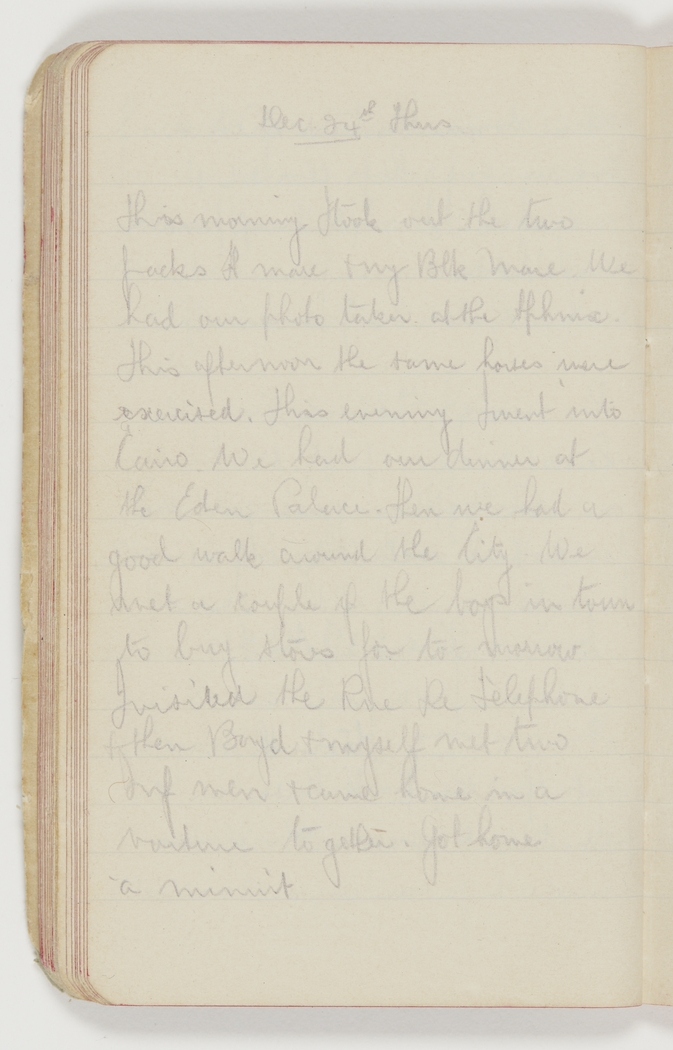 Dec. 24th Thurs
This morning I took out the two
packs R mare + my Blk Mare. We
had our photo taken at the Sphnix.
This afternoon the same horses were
exercised. This evening I went into
Cairo. We had our dinner at
the Eden Palace. Then we had a
good walk around the City. We
met a couple of the boys in town
to buy stores for to-morrow
I visited the Rue De Telephone
& then Boyd + myself met two
Inf men + came home in a
together. Got home
a minuit